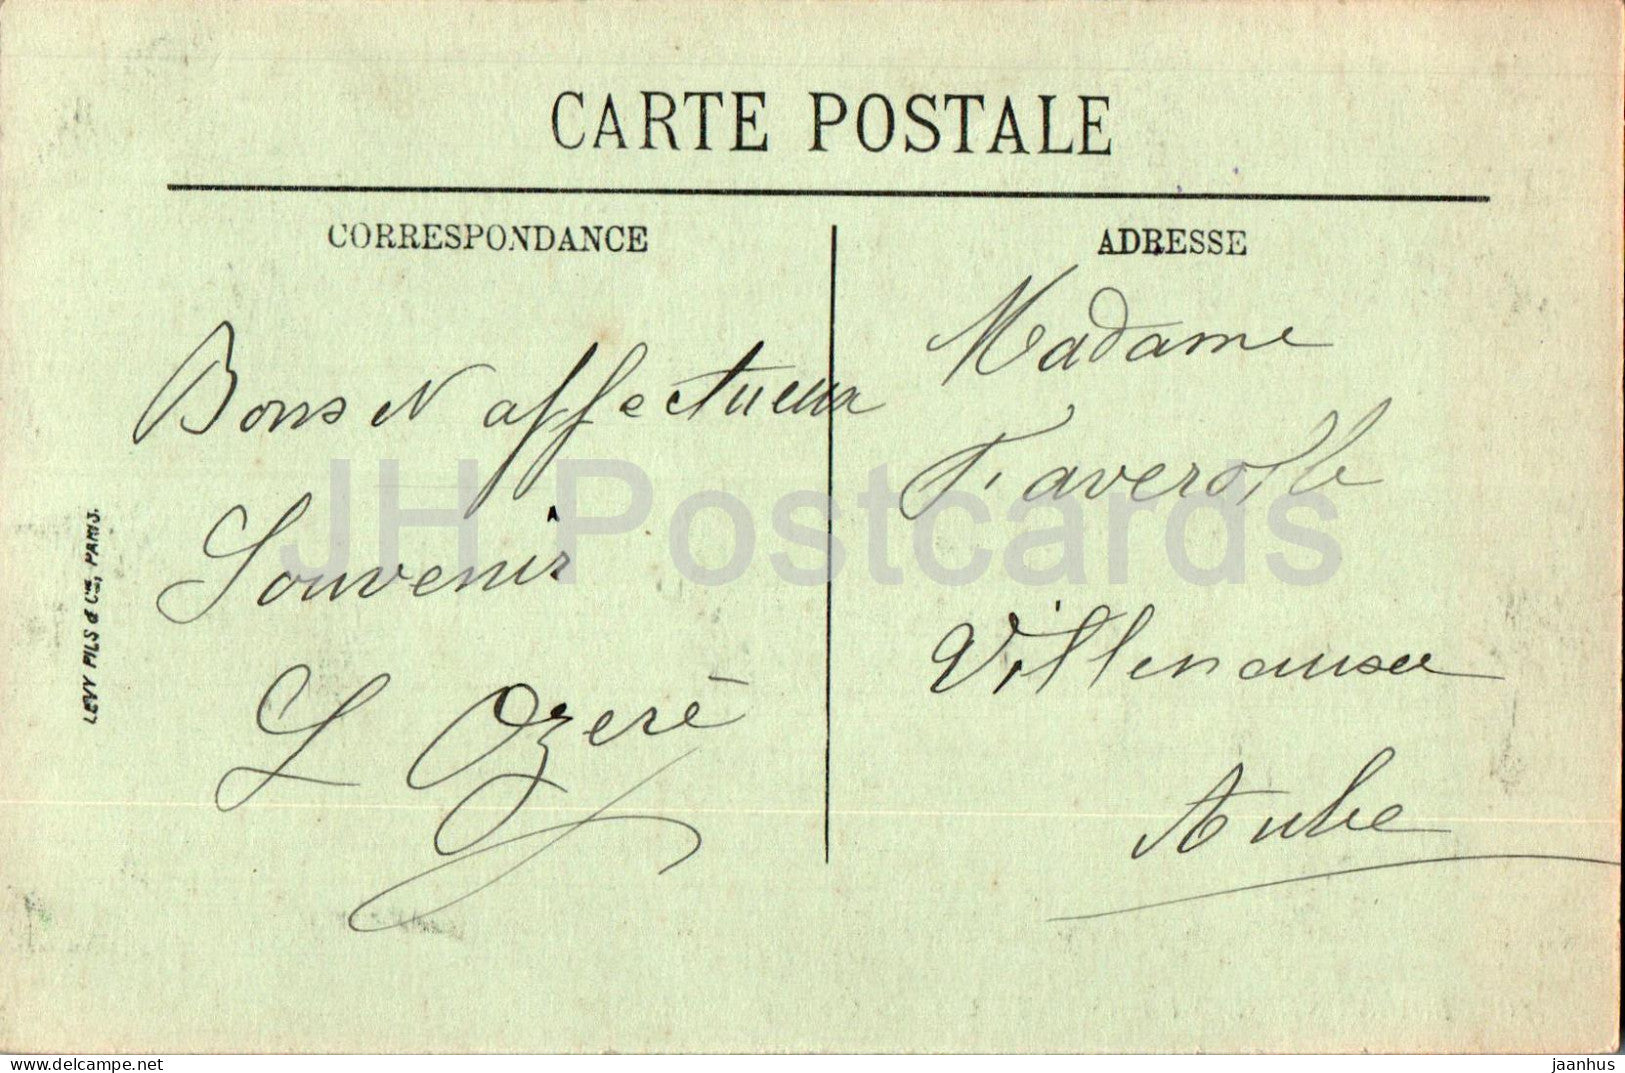 CARTE POSTALE
CORRESPONDANCE
Bons et affectueux
Souvenir
L Ozeré
LEVY FILS & Cie, PARIS.
ADRESSE
Madame
Villenauxe
Aube
JH Postcards
delcampe.net
jaanhus